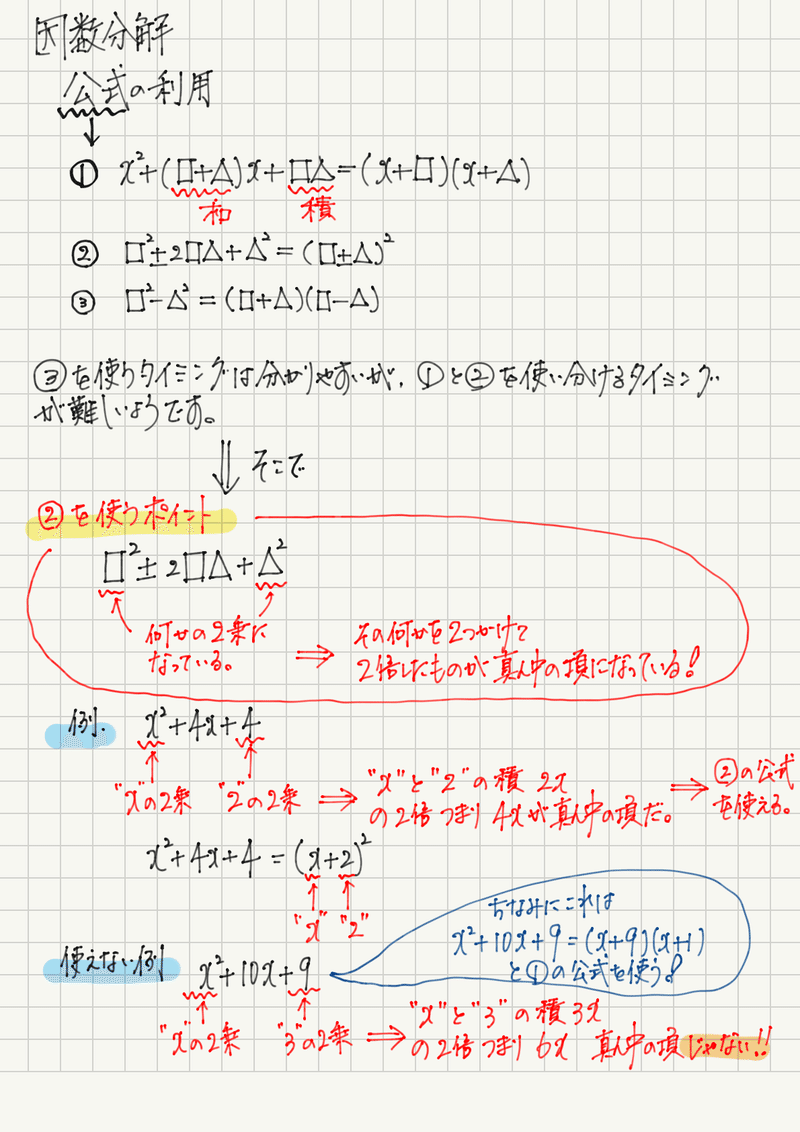 因数分解
公式の利用
① x²+(□+△)x+□△=(x+□)(x+△)
和 積
② □²±2□△+△²=(□±△)²
③ □²-△²=(□+△)(□-△)
③を使うタイミングは分かりやすいが、①と②を使い分けるタイミング
が難しいようです。
そこで
②を使うポイント
□²±2□△+△²
何かの2乗に
なっている。
⇒ その何かを2つかけて
2倍したものが真ん中の項になっている!
例. x²+4x+4
"x"の2乗 "2"の2乗 ⇒ "x"と"2"の積 2x
の2倍つまり 4xが真ん中の項だ。
⇒ ②の公式
を使える。
x²+4x+4=(x+2)²
"x" "2"
ちなみにこれは
x²+10x+9=(x+9)(x+1)
と①の公式を使う!
使えない例 x²+10x+9
"x"の2乗 "3"の2乗 ⇒ "x"と"3"の積 3x
の2倍つまり 6x 真ん中の項じゃない!!